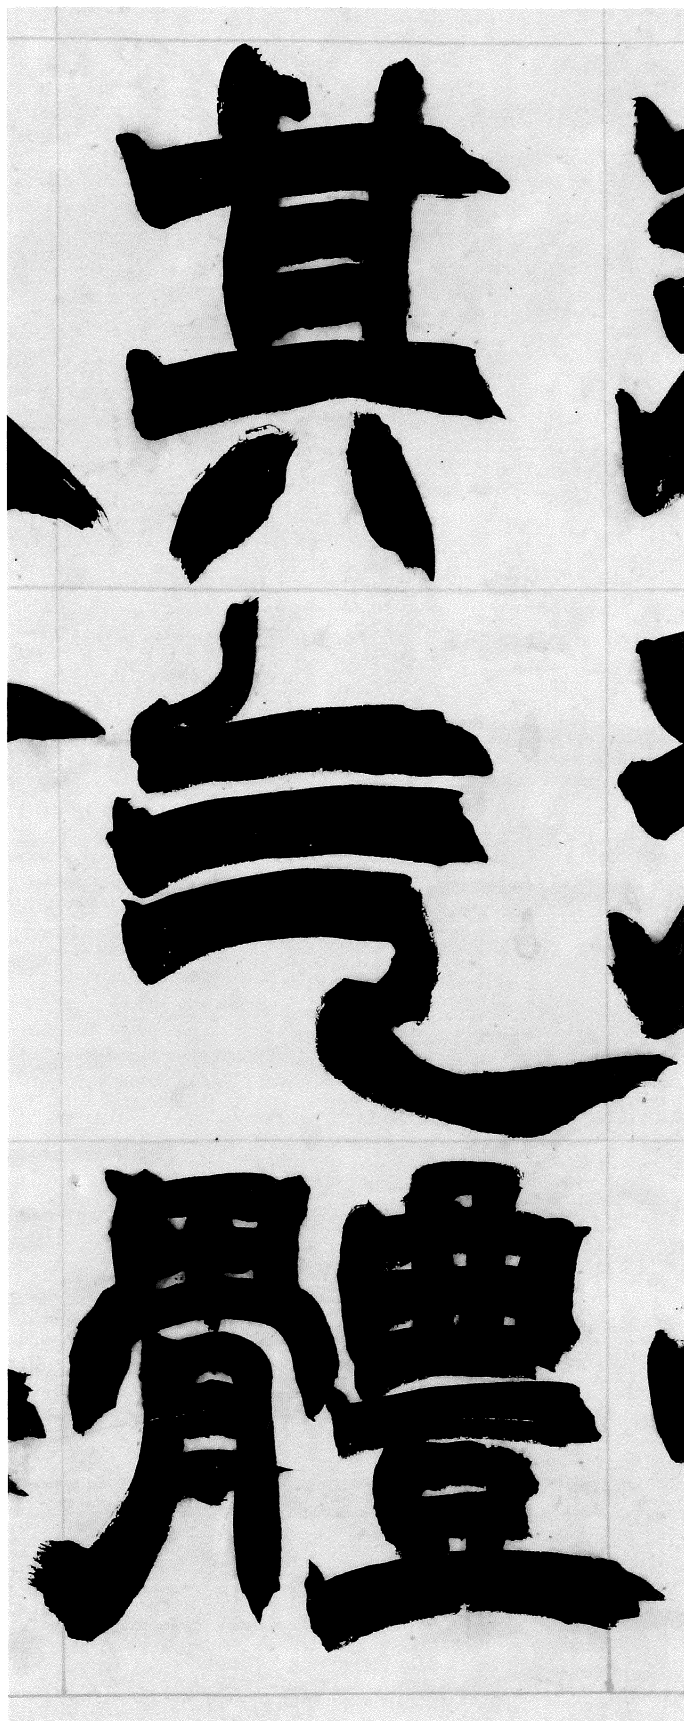 其气體